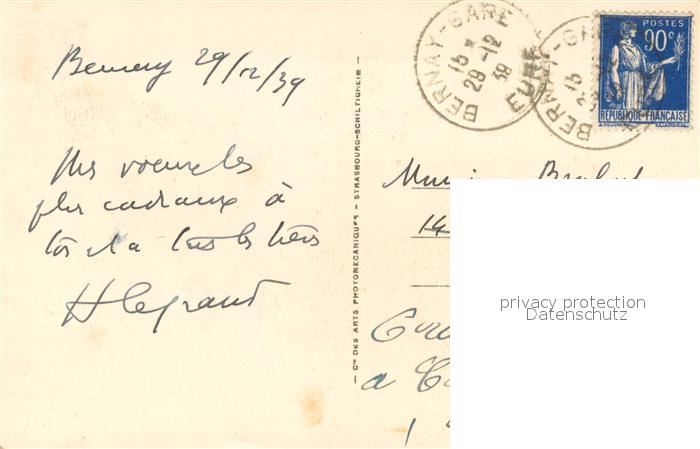 Bernay 29/12/39
Mes voeux les
plus cordiaux à
toi et à tous les tiens
H Legrand
Cie DES ARTS PHOTOMECANIQUES - STRASBOURG-SCHILTIGHEIM
BERNAY-GARE
15 *
29-12
39
EURE
BERNAY-GA
15
POSTES
90c
REPUBLIQUE FRANÇAISE
14
à
privacy protection
Datenschutz